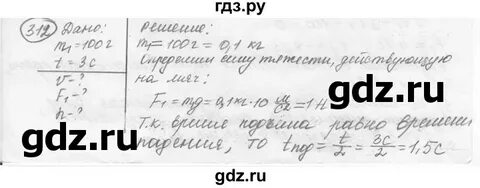 гдз.ру
312 Дано:
m₁=100г
t=3с
v-?
F₁-?
h-?
Решение:
m₁=100г=0,1 кг
Определим силу тяжести, действующую
на мяч:
F₁=mg=0,1кг·10 м/с²=1Н
Т.к. время подъёма равно времени
падения, то tпод=t/2=3с/2=1,5с
гдз.ру
гдз.ру
гдз.ру
гдз.ру